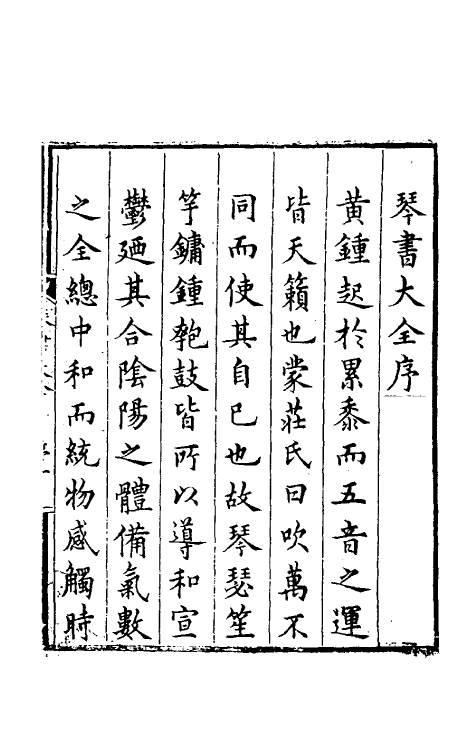 琴書大全序
黃鍾起於累黍而五音之運
皆天籟也蒙莊氏曰吹萬不
同而使其自己也故琴瑟笙
竽鏞鍾匏鼓皆所以導和宣
鬱廼其合陰陽之體備氣數
之全總中和而統物感觸時